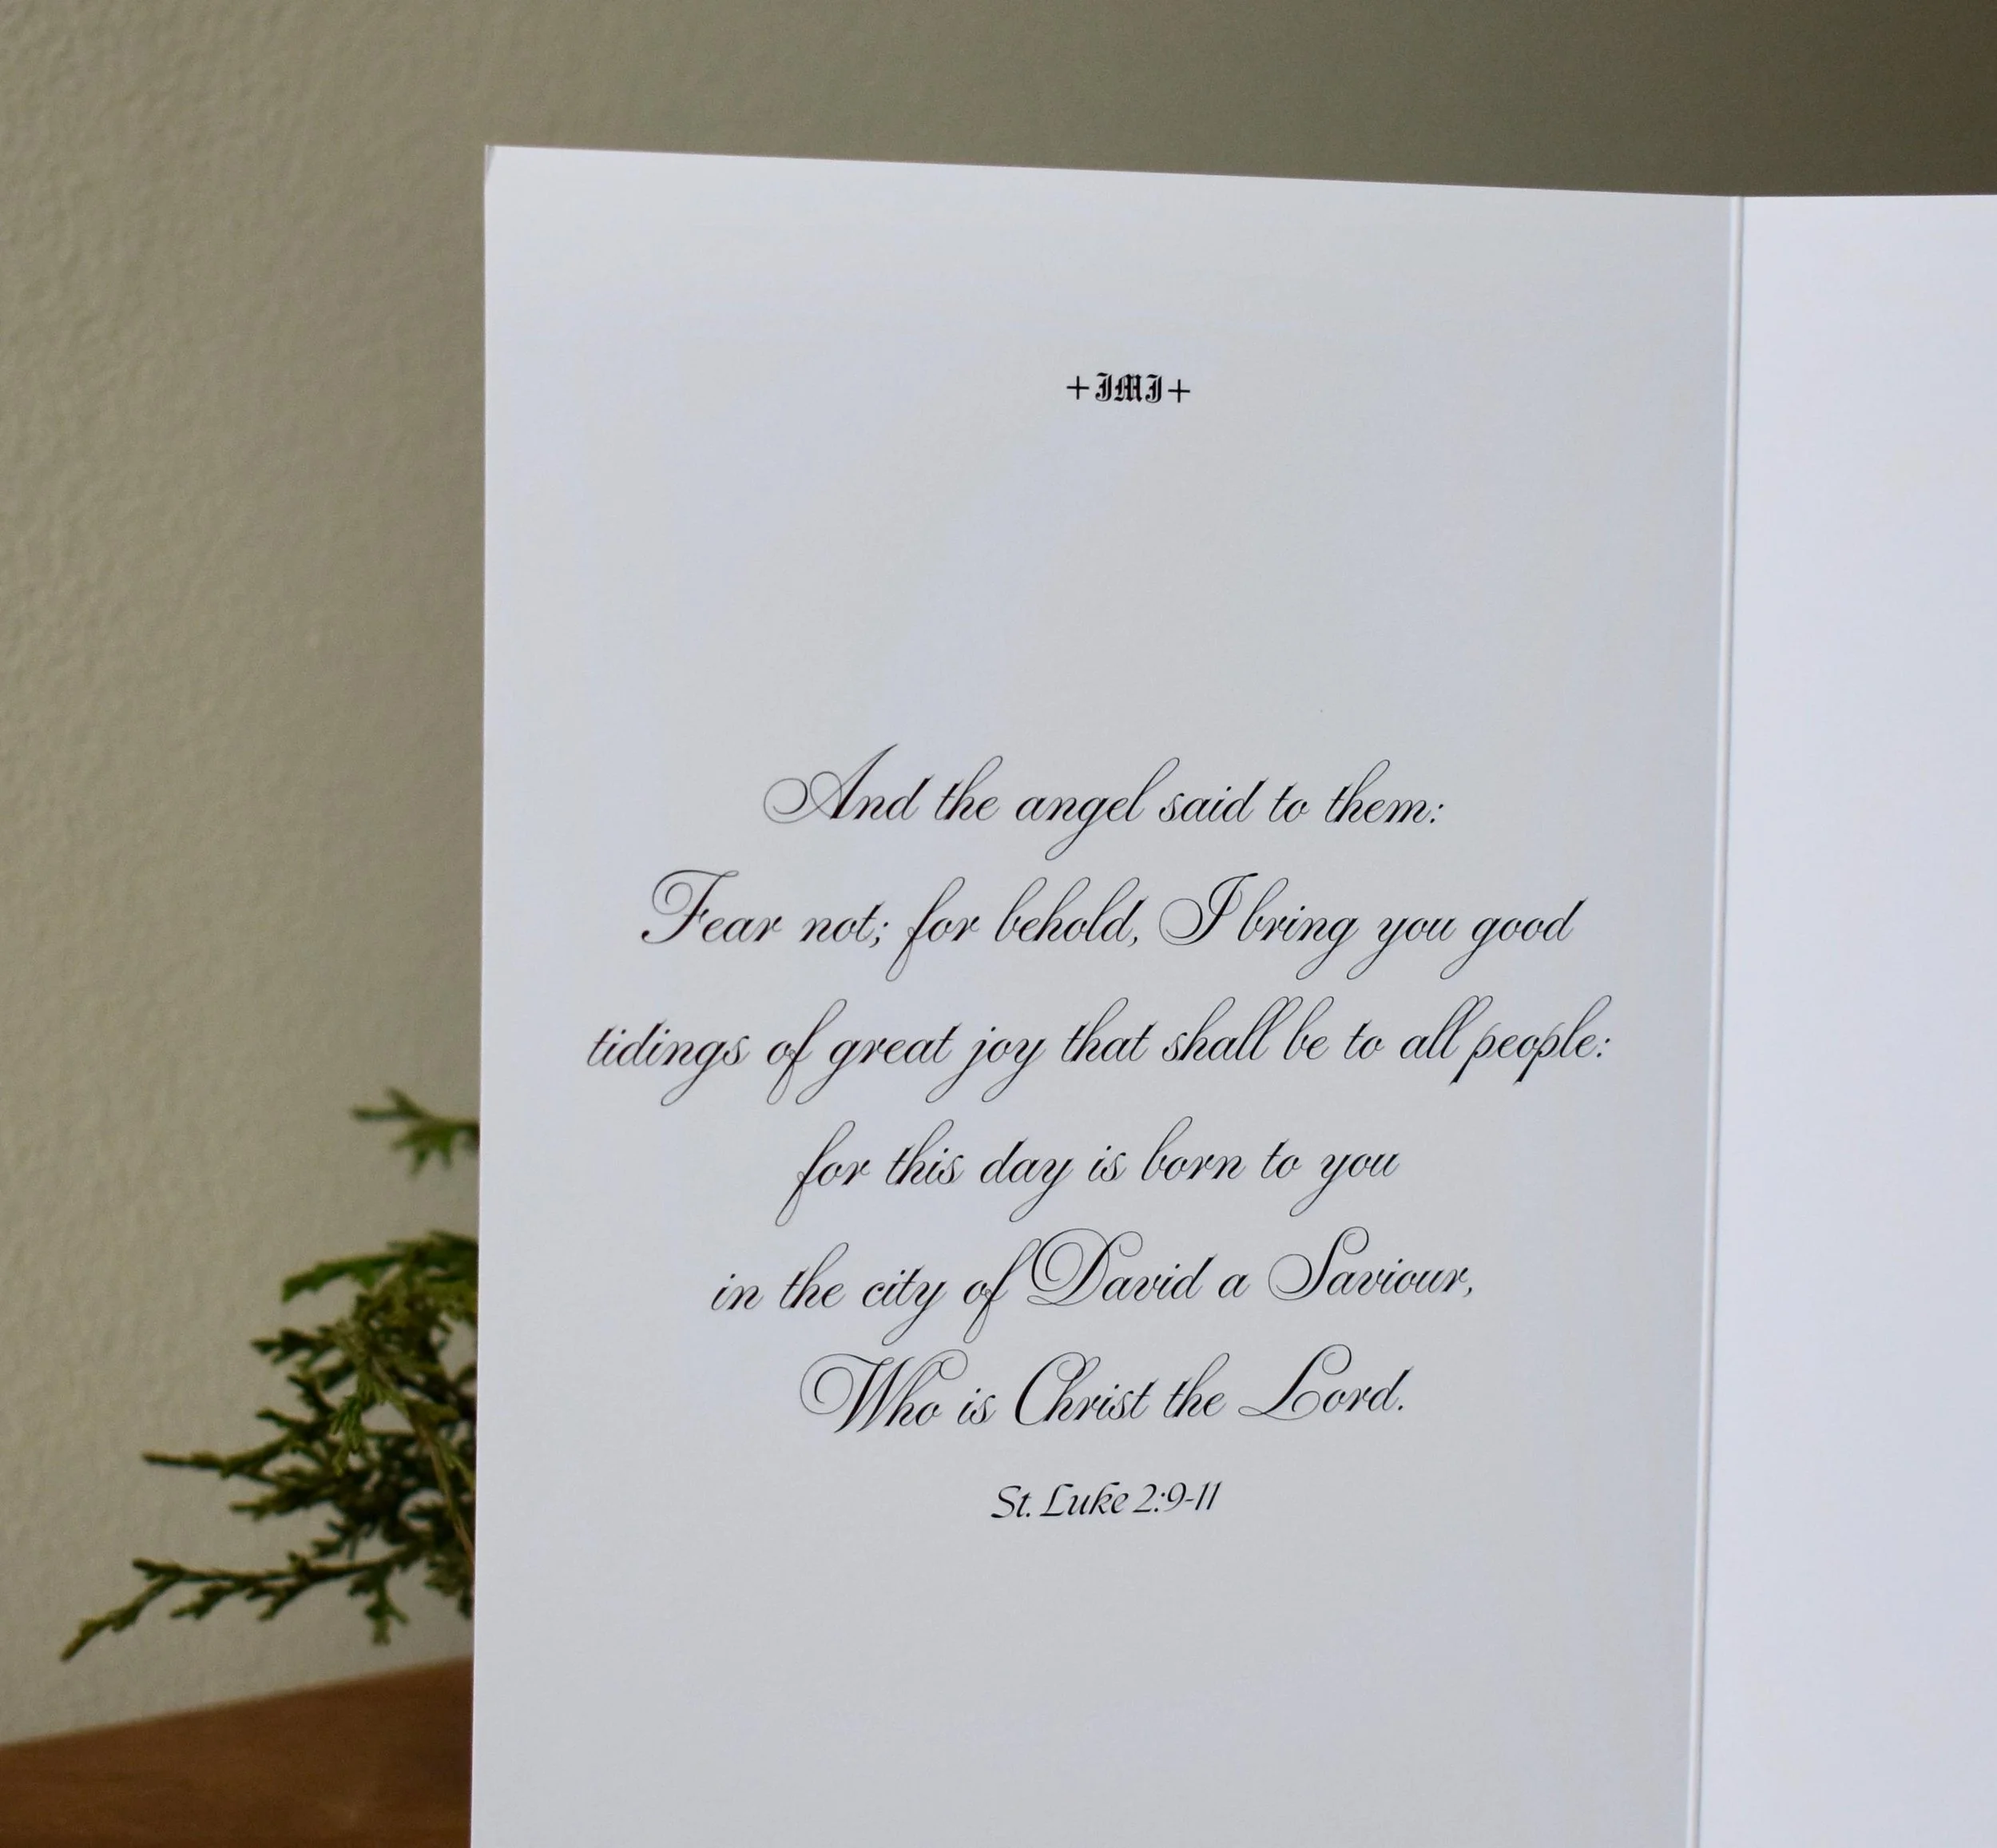 +JMJ+
And the angel said to them:
Fear not; for behold, I bring you good
tidings of great joy that shall be to all people:
for this day is born to you
in the city of David a Saviour,
Who is Christ the Lord.
St. Luke 2:9-11